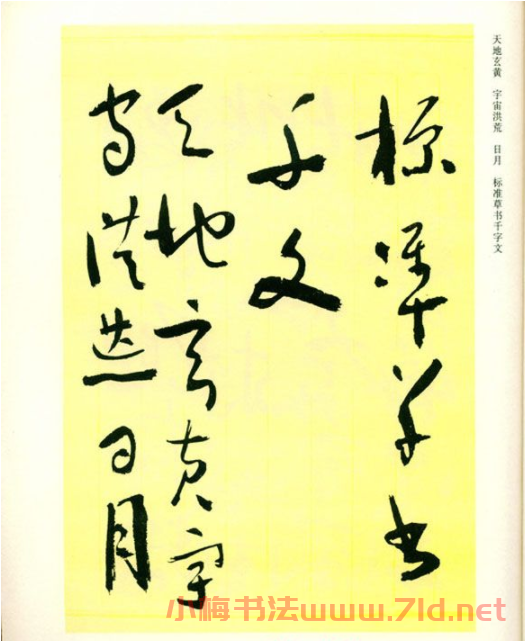 天地玄黄 宇宙洪荒 日月 标准草书千字文
標準草書
千文
天地玄黄宇
宙洪荒日月
小梅书法www.7ld.net